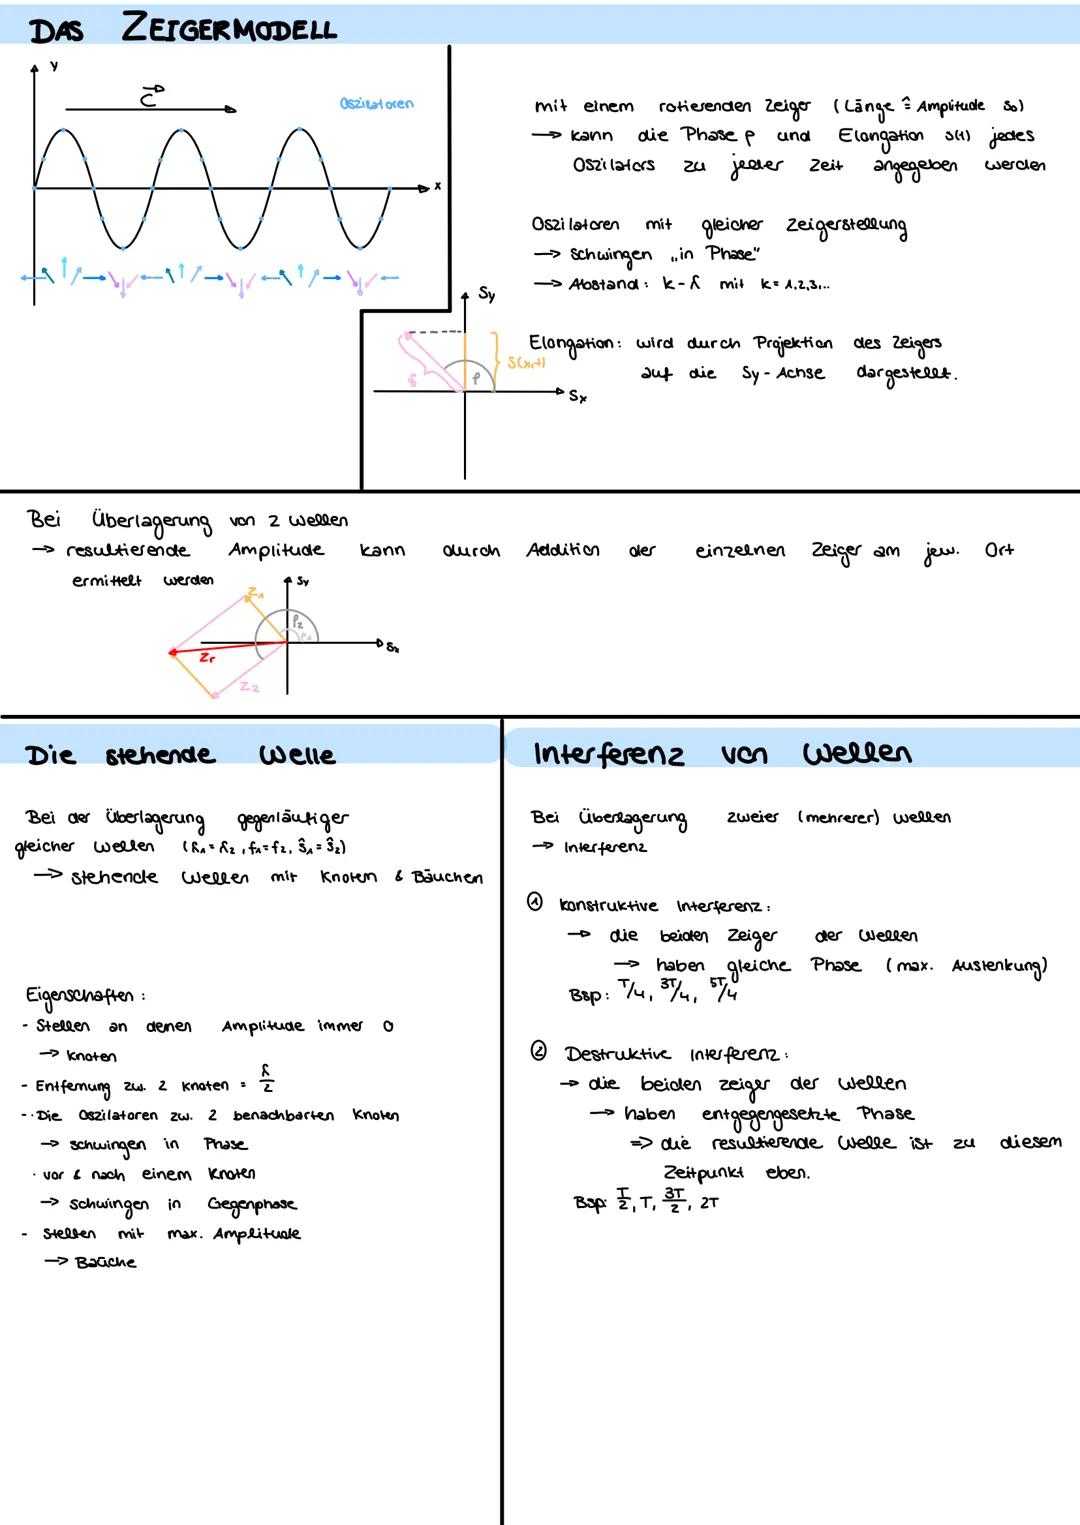 DAS ZEIGERMODELL
y
c
Oszilatoren
x
mit einem rotierenden Zeiger (Länge ≙ Amplitude s₀)
→ kann die Phase ρ und Elongation s(t) jedes
Oszilators zu jeder Zeit angegeben werden
Oszilatoren mit gleicher Zeigerstellung
→ schwingen „in Phase"
→ Abstand: k-λ mit k= 1,2,3,...
Sy
ŝ
ρ
S(x,t)
Sx
Elongation: wird durch Projektion des Zeigers
auf die Sy-Achse dargestellt.
Bei Überlagerung von 2 wellen
→ resultierende Amplitude kann durch Addition der einzelnen Zeiger am jew. Ort
ermittelt werden
Sy
Z₁
ρ₂
ρ₁
Sx
Zr
Z₂
Die stehende Welle
Bei der Überlagerung gegenläufiger
gleicher wellen (λ₁=λ₂, f₁=f₂, ŝ₁=ŝ₂)
→ stehende Wellen mit Knoten & Bäuchen
Eigenschaften:
- Stellen an denen Amplitude immer 0
→ Knoten
- Entfernung zw. 2 Knoten = λ/2
-·Die Oszilatoren zw. 2 benachbarten Knoten
→ schwingen in Phase
· vor & nach einem Knoten
→ schwingen in Gegenphase
- Stellen mit max. Amplitude
→ Bäuche
Interferenz von Wellen
Bei Überlagerung zweier (mehrerer) wellen
→ Interferenz
① konstruktive Interferenz:
→ die beiden Zeiger der Wellen
→ haben gleiche Phase (max. Auslenkung)
Bsp: T/4, 3T/4, 5T/4
② Destruktive Interferenz:
→ die beiden zeiger der wellen
→ haben entgegengesetzte Phase
⇒ die resultierende Welle ist zu diesem
Zeitpunkt eben.
Bsp: T/2, T, 3T/2, 2T